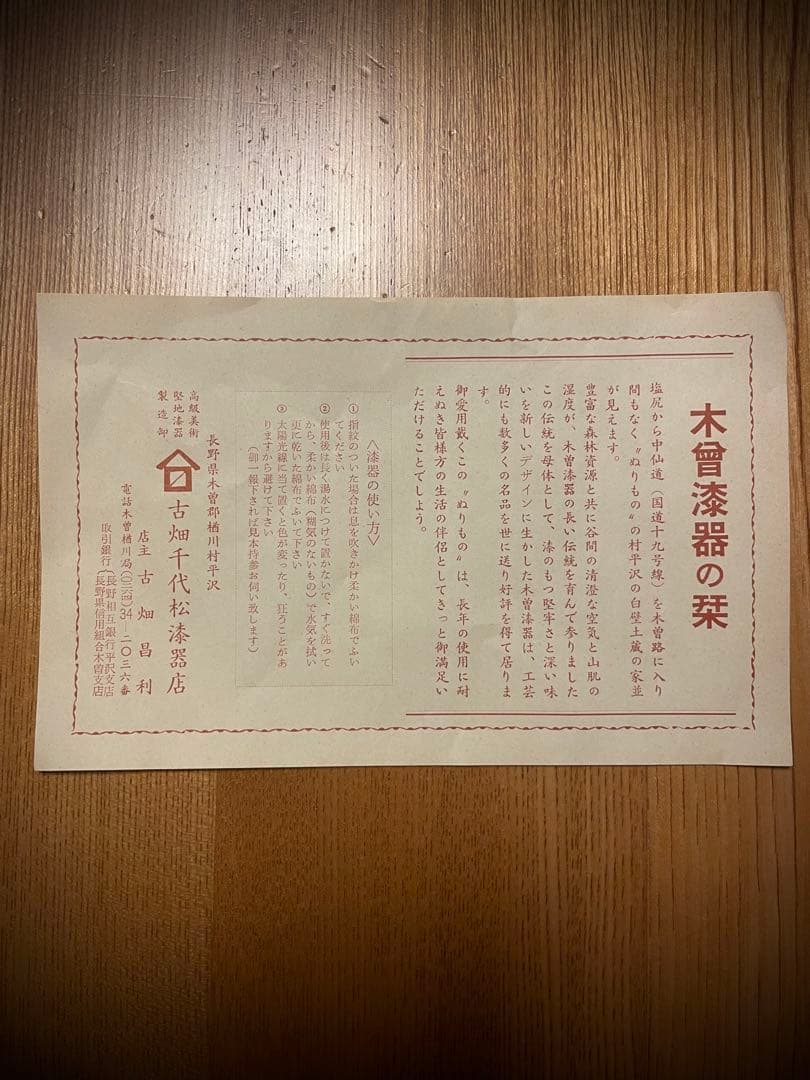 木曾漆器の栞
塩尻から中仙道（国道十九号線）を木曽路に入り
間もなく〝ぬりもの〟の村平沢の白壁土蔵の家並
が見えます。
豊富な森林資源と共に谷間の清澄な空気と山肌の
湿度が、木曽漆器の長い伝統を育んで参りました
この伝統を母体として、漆のもつ堅牢さと深い味
いを新しいデザインに生かした木曽漆器は、工芸
的にも数多くの名品を世に送り好評を得て居りま
す。
御愛用戴くこの〝ぬりもの〟は、長年の使用に耐
えぬき皆様方の生活の伴侶としてきっと御満足い
ただけることでしょう。
〈漆器の使い方〉
① 指紋のついた場合は息を吹きかけ柔かい綿布でふい
てください
② 使用後は長く湯水につけて置かないで、すぐ洗って
から、柔かい綿布（糊気のないもの）で水気を拭い
更に乾いた綿布でふいて下さい
③ 太陽光線に当て置くと色が変ったり、狂うことがあ
りますから避けて下さい
（御一報下されば見本持参お伺い致します）
長野県木曽郡楢川村平沢
高級美術
堅地漆器
製造卸
古畑千代松漆器店
店主 古畑昌利
電話木曽楢川局(〇二六四)34-二〇三六番
取引銀行(長野相互銀行平沢支店
(長野県信用組合木曽支店